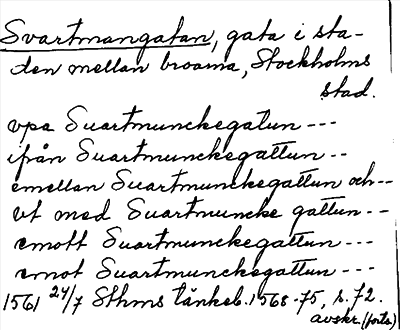 Svartmangatan, gata i sta-
den mellan broarna, Stockholms
stad.
vpa Suartmunckegatun ---
ifrån Suartmunckegattun --
emellan Suartmunckegattun och--
vt med Suartmuncke gattun --
emott Suartmunckegattun ---
emot Suartmunckegattun ---
1561 24/7 Sthms tänkeb. 1568-75, s. 72.
avskr. (forts.)